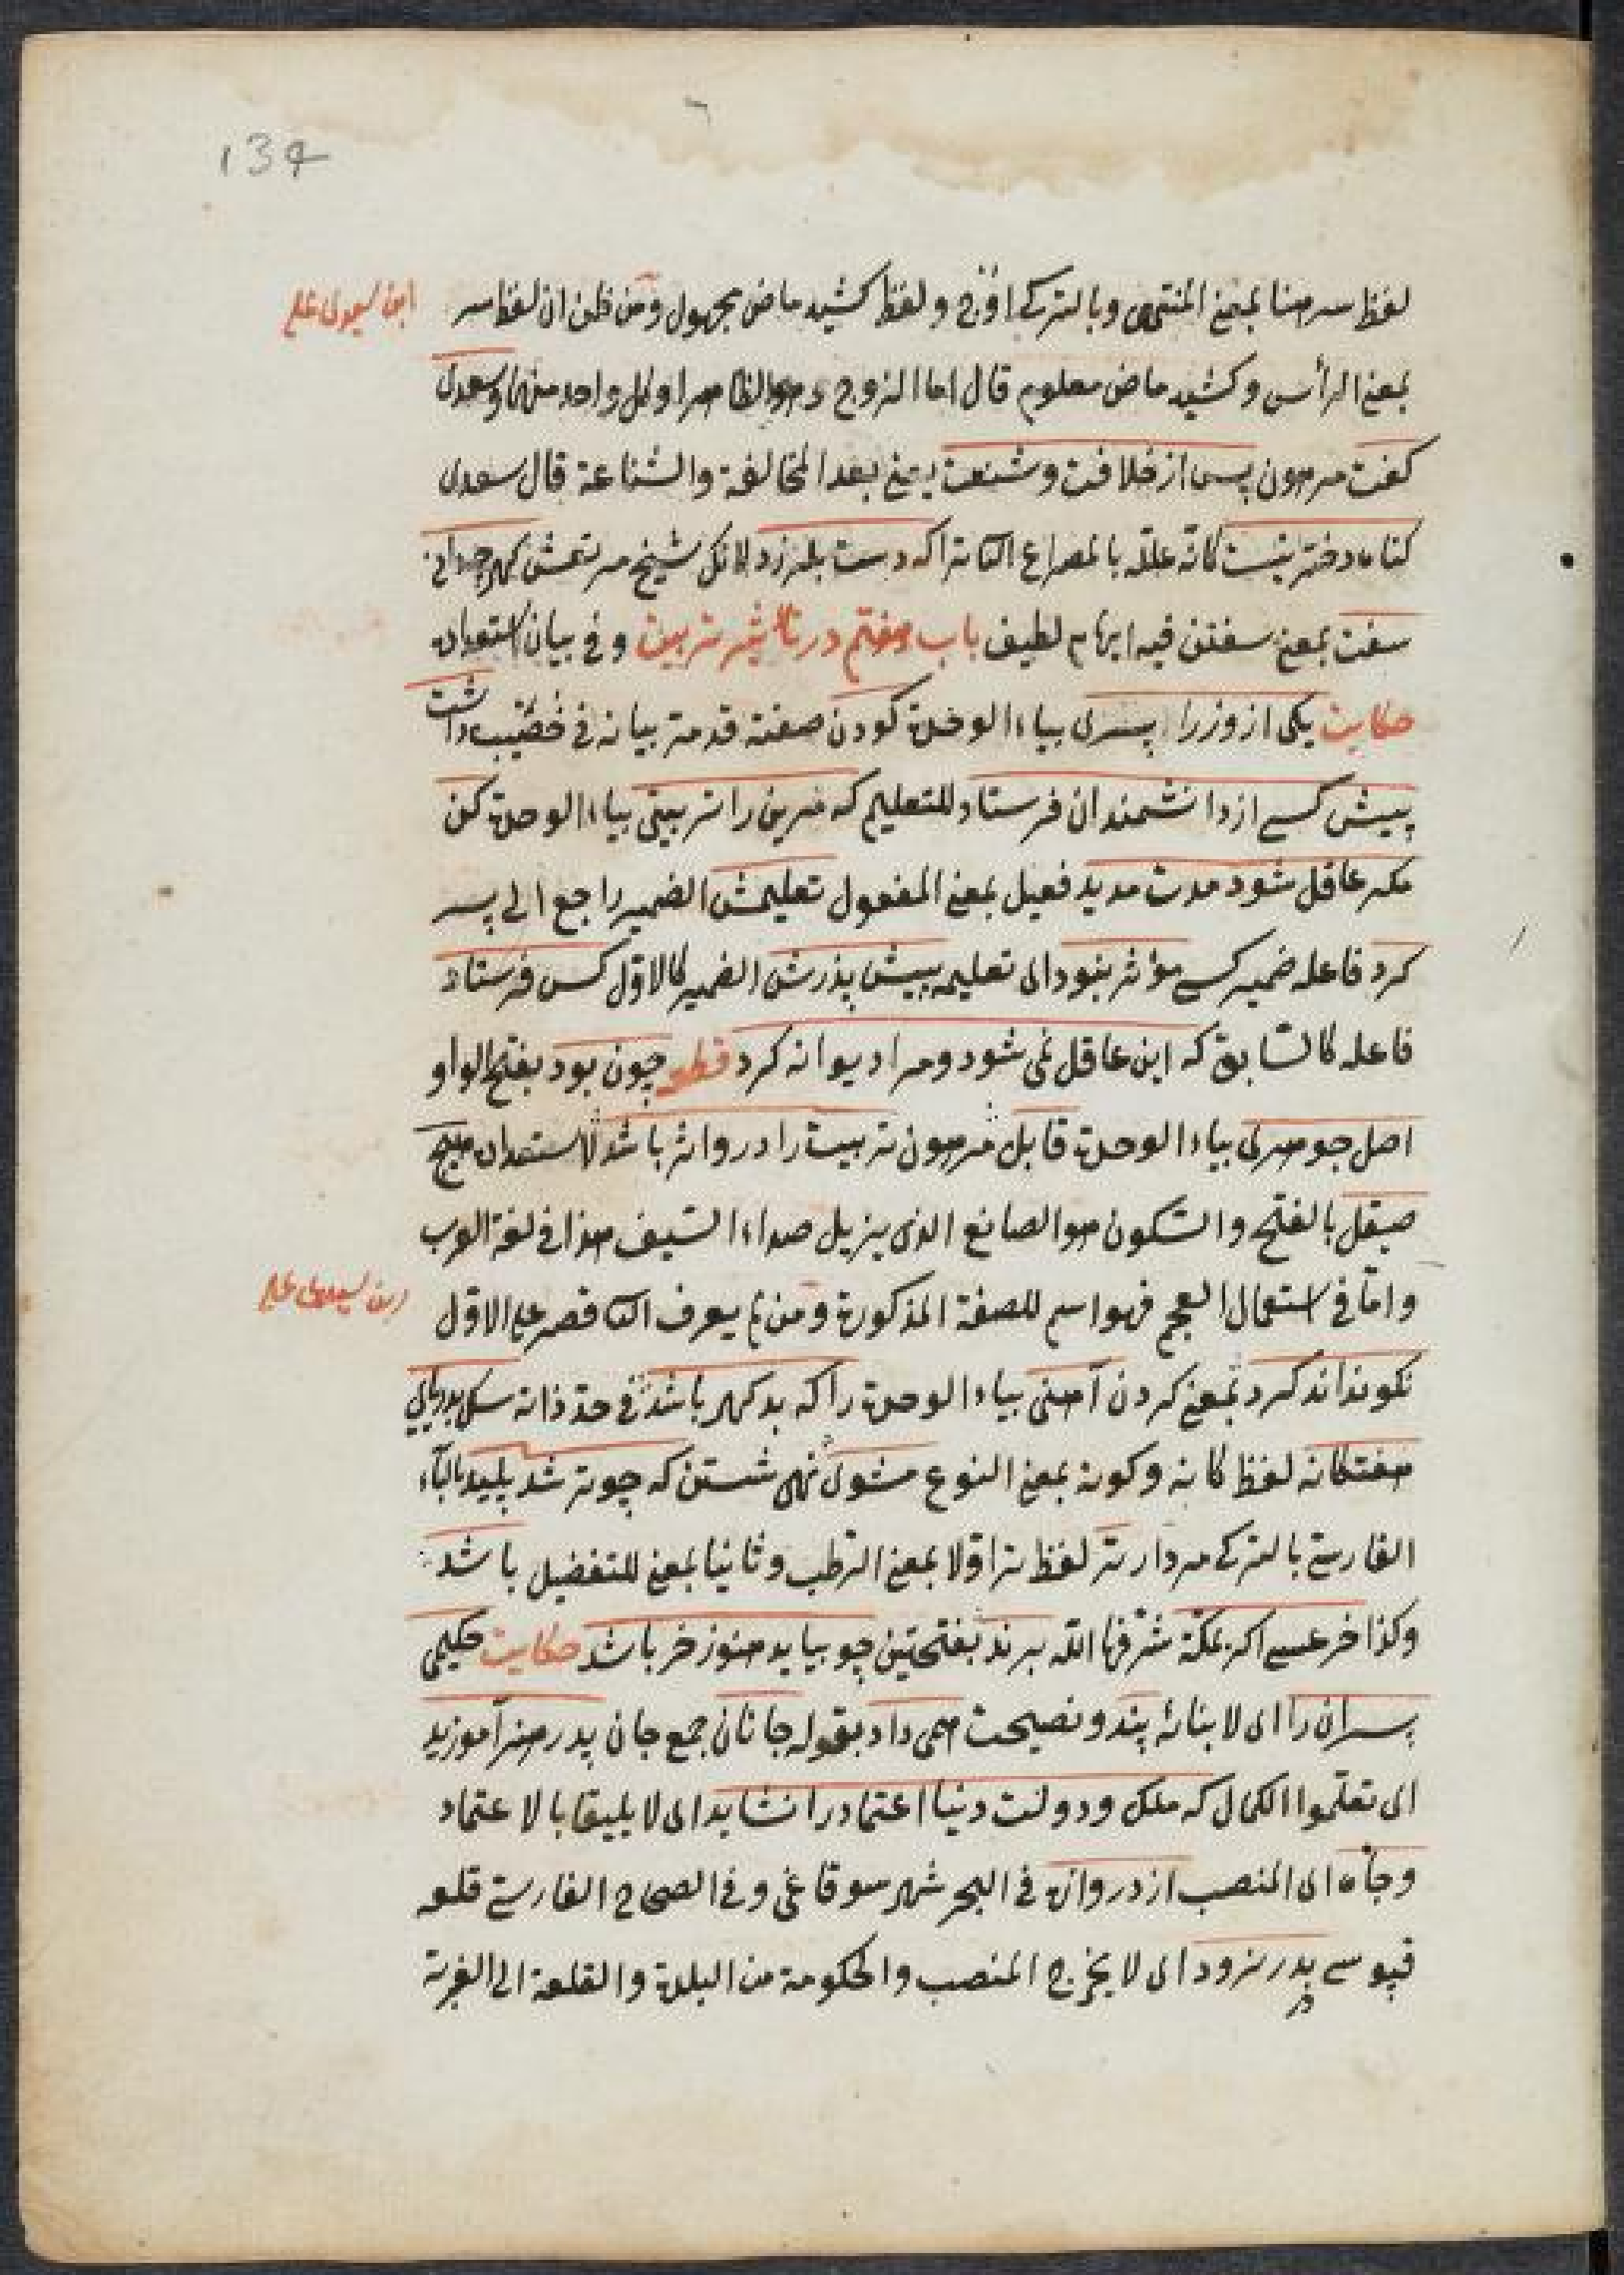 134
لفظ سر هنا بمعنى المنتهى وبالتركى اوج ولفظ كشيد ماض مجهول ومن ظن ان لفظ سر
بمعنى الرأس وكشيد ماض معلوم قال اما الزوج وهو الظاهر او كل واحد منهما وسعدى
كفت مرهون پس از خلافت وشنعت يعنى بعد المخالفة والشناعة قال سعدى
كناه دختر نيست كانه علله بالمصراع الثانى آنرا كه دست بلرزد لانك شيخ مرتعش كهر چه دانى
سفت بمعنى سفتن فيه ايهام لطيف باب هفتم در تأثير تربيت وفى بيان استعداده
حكايت يكى از وزرا پسرى بياء الوحدة كودن صفته قد مر بيانه فى خطيب داشت
پيش كسى از دانشمندان فرستاد للتعليم كه مرين را تربيتى بياء الوحدة كن
مكر عاقل شود مدت مديد فعيل بمعنى المفعول تعليمش الضمير راجع الى پسر
كرد فاعله ضمير كسى مؤثر نبود اى تعليمه پيش پدرش الضمير كالاول كس فرستاد
فاعله كالسابق كه اين عاقل نمى شود ومرا ديوانه كرد قطعه چون بود بفتح الواو
اصل جوهرى بياء الوحدة قابل مرهون تربيت را درو اثر باشد لاستعداده هيچ
صيقل بالفتح والسكون هو الصانع الذى يزيل صداء السيف هذا فى لغة العرب
واما فى استعمال العجم فهو اسم للصفة المذكورة ومن لم يعرف الثانى قصر على الاول
نكو نداند كرد بمعنى كردن آهنى بياء الوحدة را كه بدكهر باشد فى حد ذاته سك بدرياى
هفتكانه لفظ كانه وكونه بمعنى النوع مشوى نهى شستن كه چو تر شد پليد بالباء
الفارسى بالتركى مردار تر لفظ تر اولا بمعنى الرطب وثانيا بمعنى للتفضيل باشد
وكذا خر عيسى اكر بمكة شرفها الله برند بفتحتين چو بيايد هنوز خر باشد حكايت حكيمى
پسران را اى لابنائه پند ونصيحت همى داد بقوله جانان جمع جان پدر هنر آموزيد
اى تعلموا الكمال كه ملك ودولت دنيا اعتماد را نشايد اى لا يليقا بالاعتماد
وجاه اى المنصب از دروازه فى البحر شهر سوقاغى وفى الصحاح الفارسى قلعه
قپوسى بدر نرود اى لا يخرج المنصب والحكومة من البلدة والقلعة الى الغربة
ابن سيدى على
ابن سيدى على